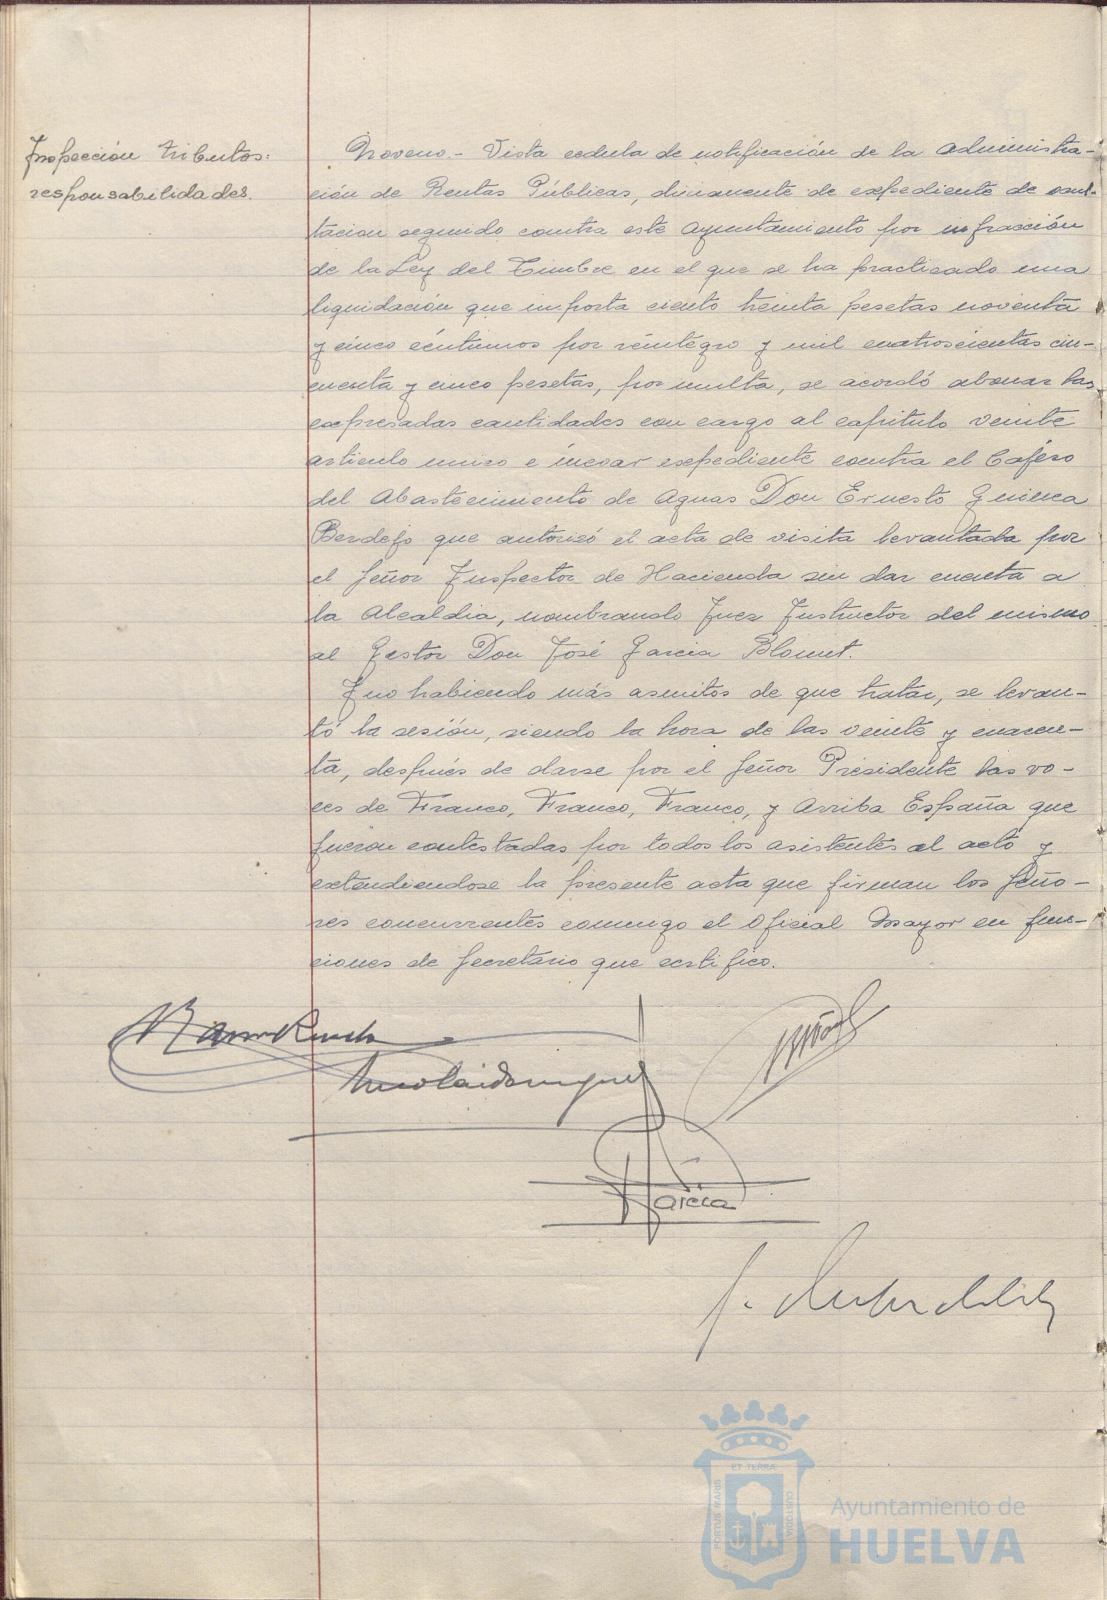 Inspección tributos:
responsabilidades.
Noveno.- Vista cedula de notificación de la administra-
ción de Rentas Públicas, dimanente de expediente de
tacion seguido contra este Ayuntamiento por infracción
de la Ley del Timbre en el que se ha practicado una
liquidación que importa ciento treinta pesetas noventa
y cinco céntimos por reintegro y mil cuatrocientas cin-
cuenta y cinco pesetas, por multa, se acordó abonar las
expresadas cantidades con cargo al capitulo veinte
articulo unico e incoar expediente contra el Cajero
del Abastecimiento de Aguas Don Ernesto
que autorizó el acta de visita levantada por
el Señor Inspector de Hacienda sin dar cuenta a
la Alcaldia, nombrando Juez Instructor del mismo
al Gestor Don José Garcia
Y no habiendo más asuntos de que tratar, se levan-
tó la sesión, siendo la hora de las veinte y cuaren-
ta, después de darse por el Señor Presidente las vo-
ces de Franco, Franco, Franco, y Arriba España que
fueron contestadas por todos los asistentes al acto y
extendiendose la presente acta que firman los Seño-
res concurrentes conmigo el Oficial Mayor en fun-
ciones de Secretario que certifico.
Garcia
PORTUS MARIS
ET TERRÆ
CUSTODIA
Ayuntamiento de
HUELVA